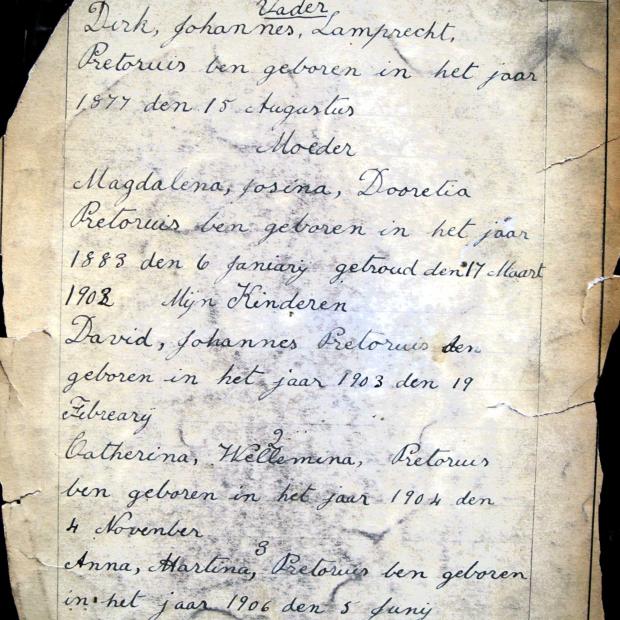 Vader
Dirk, Johannes, Lamprecht,
Pretoruis ben geboren in het jaar
1877 den 15 Augustus
Moeder
Magdalena, Josina, Dooretia
Pretoruis ben geboren in het jaar
1883 den 6 Janiarij getroud den 17 Maart
1902 Mijn Kinderen
David, Johannes Pretoruis den
geboren in het jaar 1903 den 19
Febrearij
2
Catherina, Wellemina, Pretoruis
ben geboren in het jaar 1904 den
4 November
3
Anna, Martina, Pretoruis ben geboren
in het jaar 1906 den 5 Junij